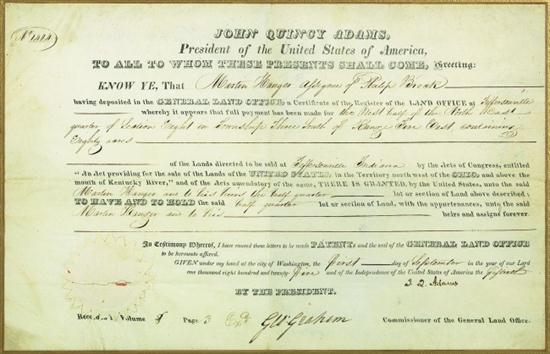 JOHN QUINCY ADAMS,
President of the United States of America,
TO ALL TO WHOM THESE PRESENTS SHALL COME, Greeting:
KNOW YE, That Martin Hanger Assignee of Philip Brock
having deposited in the GENERAL LAND OFFICE, a Certificate of the Register of the LAND OFFICE at Jeffersonville
whereby it appears that full payment has been made for the West half of the North East
quarter of Section Eight in Township Three South of Range East containing
Eighty acres
of the Lands directed to be sold at Jeffersonville Indiana by the Acts of Congress, entitled
"An Act providing for the sale of the Lands of the UNITED STATES, in the Territory northwest of the OHIO, and above the
mouth of Kentucky River," and of the Acts amendatory of the same, THERE IS GRANTED, by the United States, unto the said
Martin Hanger and to his heirs the half quarter lot or Section of Land above described,
TO HAVE AND TO HOLD the said half quarter lot or section of Land, with the appurtenances, unto the said
Martin Hanger and to his heirs and assigns forever.
In Testimony Whereof, I have caused these letters to be made PATENT, and the seal of the GENERAL LAND OFFICE
to be hereunto affixed.
GIVEN under my hand at the city of Washington, the first day of September in the year of our Lord
one thousand eight hundred and twenty-five and of the Independence of the United States of America the fiftieth
J. Q. Adams
BY THE PRESIDENT.
Recorded, Volume Page 3
Geo Graham
Commissioner of the General Land Office.